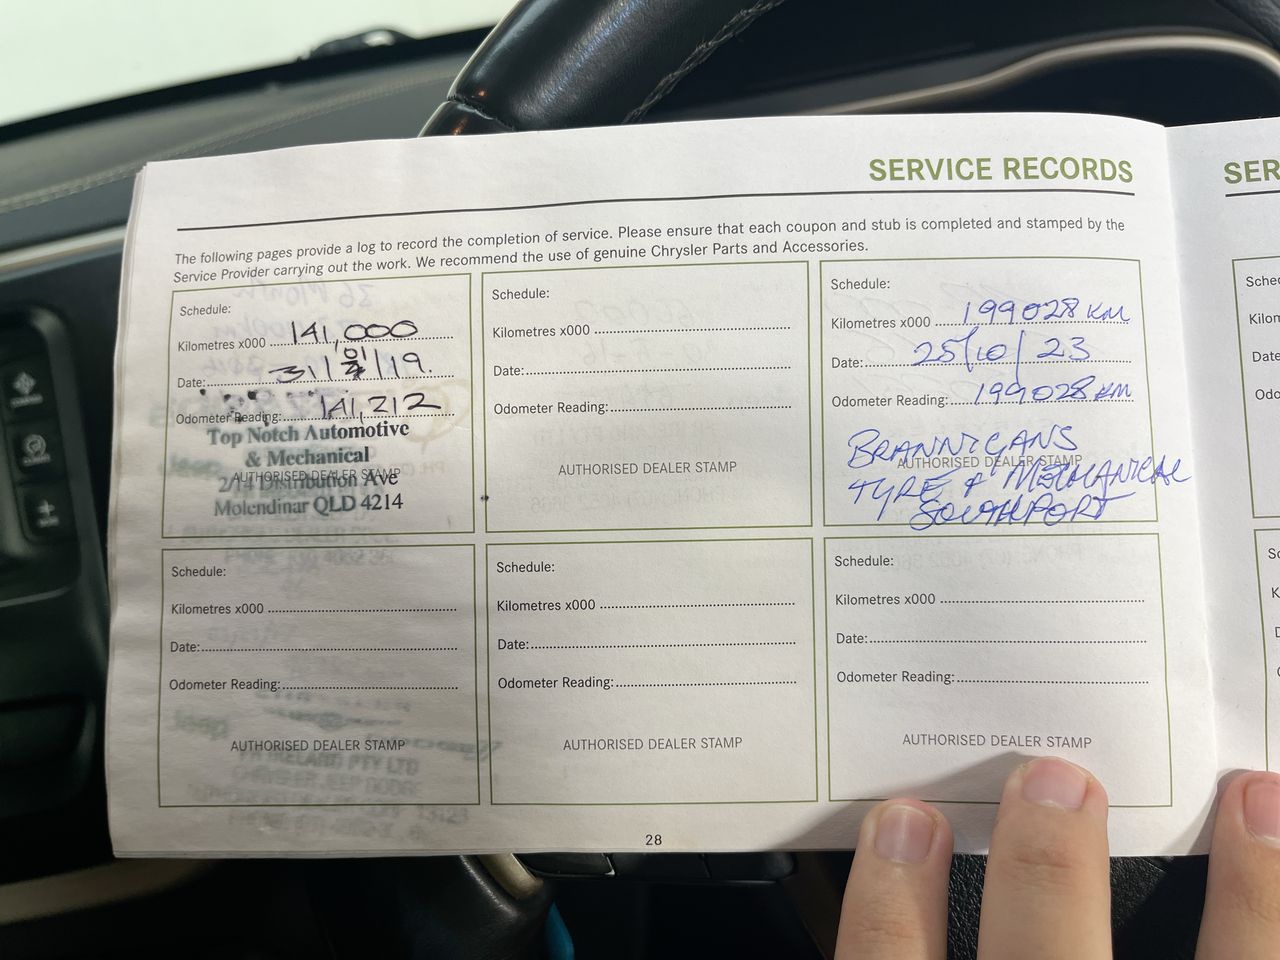 SERVICE RECORDS
The following pages provide a log to record the completion of service. Please ensure that each coupon and stub is completed and stamped by the
Service Provider carrying out the work. We recommend the use of genuine Chrysler Parts and Accessories.
Schedule:
Kilometres x000 141,000
Date: 31/01/19.
Odometer Reading: 141,212
Top Notch Automotive
& Mechanical
AUTHORISED DEALER STAMP
2/14 Distribution Ave
Molendinar QLD 4214
Schedule:
Kilometres x000
Date:
Odometer Reading:
AUTHORISED DEALER STAMP
Schedule:
Kilometres x000 199028 KM
Date: 25/10/23
Odometer Reading: 199028 KM
BRANNIGANS
AUTHORISED DEALER STAMP
TYRE & MECHANICAL
SOUTHPORT
Schedule:
Kilometres x000
Date:
Odometer Reading:
AUTHORISED DEALER STAMP
Schedule:
Kilometres x000
Date:
Odometer Reading:
AUTHORISED DEALER STAMP
Schedule:
Kilometres x000
Date:
Odometer Reading:
AUTHORISED DEALER STAMP
28
SER